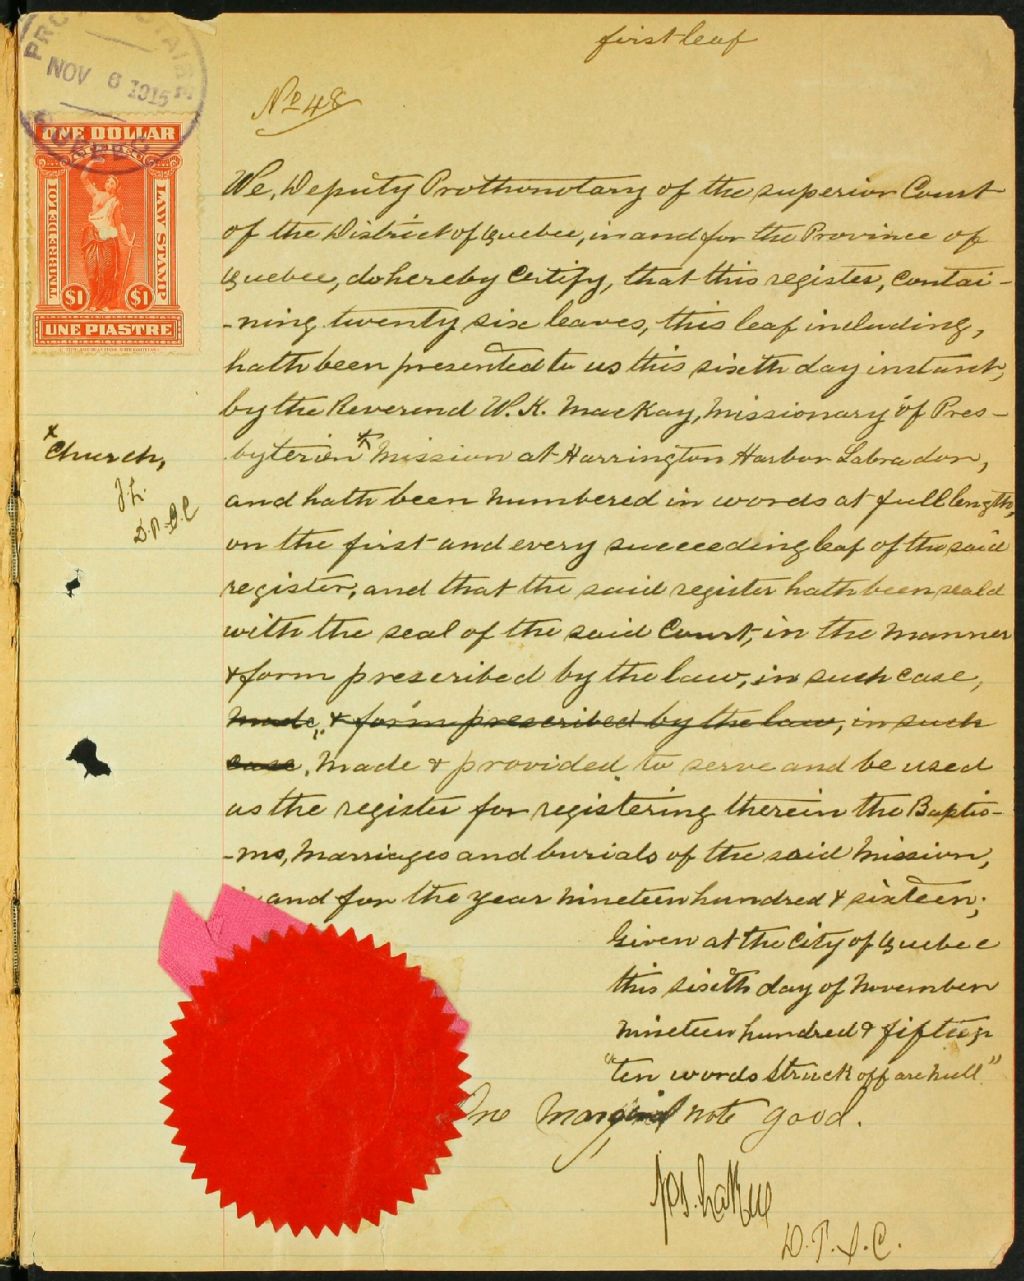 first leaf
PROTONOTAIRE
NOV 6 1915
QUEBEC
No 48
ONE DOLLAR
TIMBRE DE LOI
LAW STAMP
$1 $1
UNE PIASTRE
We, Deputy Prothonotary of the superior Court
of the District of Quebec, in and for the Province of
Quebec, do hereby Certify, that this register, Contai-
-ning twenty six leaves, this leaf including,
hath been presented to us this sixth day instant,
by the Reverend W. K. MacKay, Missionary of Pres-
byterien x Mission at Harrington Harbor Labradon,
x Church,
J. L.
D.P.S.C
and hath been numbered in words at full length,
on the first and every succeeding leaf of the said
register; and that the said register hath been seald
with the seal of the said Court, in the manner
& form prescribed by the law, in such case,
made, & form prescribed by the law, in such
case, Made & provided to serve and be used
as the register for registering therein the Baptis-
-ms, Marriages and burials of the said Mission,
in and for the year nineteen hundred & sixteen;
Given at the City of Quebec
this sixth day of November
nineteen hundred & fifteen
"ten words Struck off are null"
One Marginal note good.
D.P.S.C.